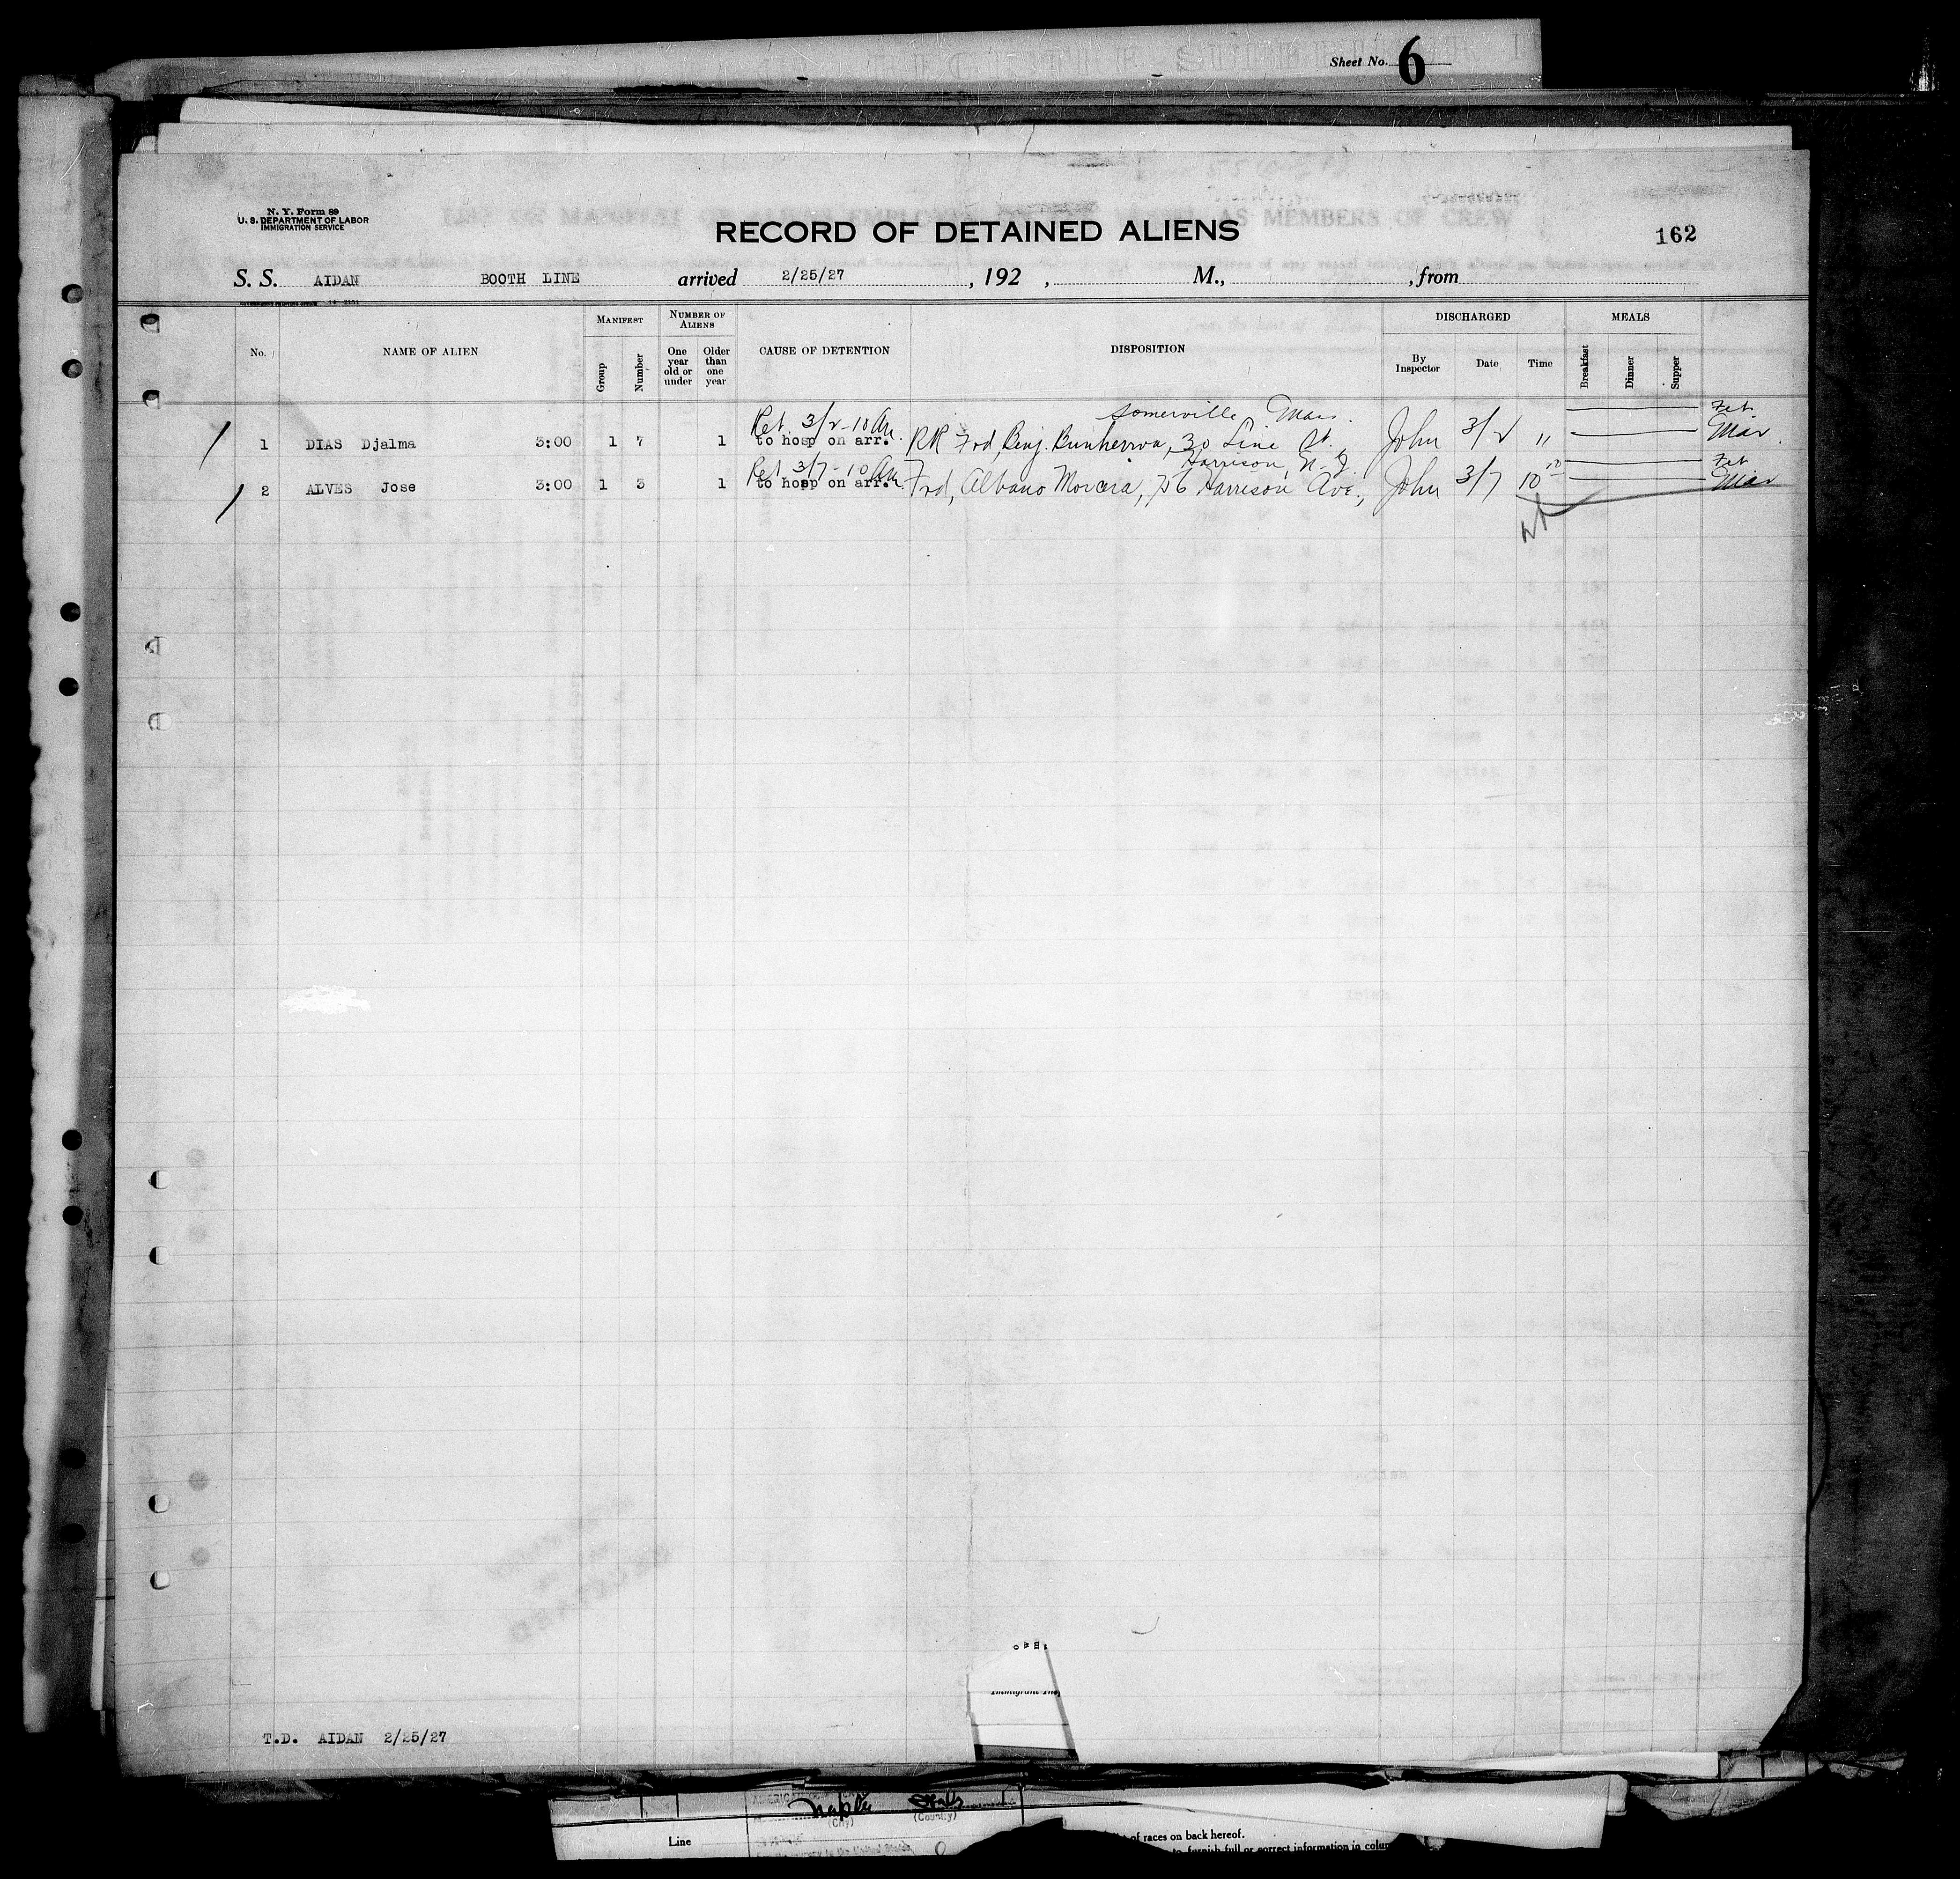 Sheet No. 6
N. Y. Form 89
U. S. DEPARTMENT OF LABOR
IMMIGRATION SERVICE
RECORD OF DETAINED ALIENS
162
S. S. AIDAN BOOTH LINE arrived 2/25/27 , 192 , M., , from
No. NAME OF ALIEN MANIFEST Group Number NUMBER OF ALIENS One year old or under Older than one year CAUSE OF DETENTION DISPOSITION DISCHARGED By Inspector Date Time MEALS Breakfast Dinner Supper
Ret. 3/2-10 Am. Somerville, Mass.
1 DIAS Djalma 3:00 1 7 1 to hosp on arr. RR Frd, Benj. 30 Line St. John 3/2 " Mar.
Ret 3/7-10 Am. Harrison, N. J.
2 ALVES Jose 3:00 1 3 1 to hosp on arr. Frd, Albano 756 Harrison Ave., John 3/7 10 Mar
T.D. AIDAN 2/25/27
Immigrant
(City) (Country)
Line
of races on back hereof.
to furnish full or correct information in